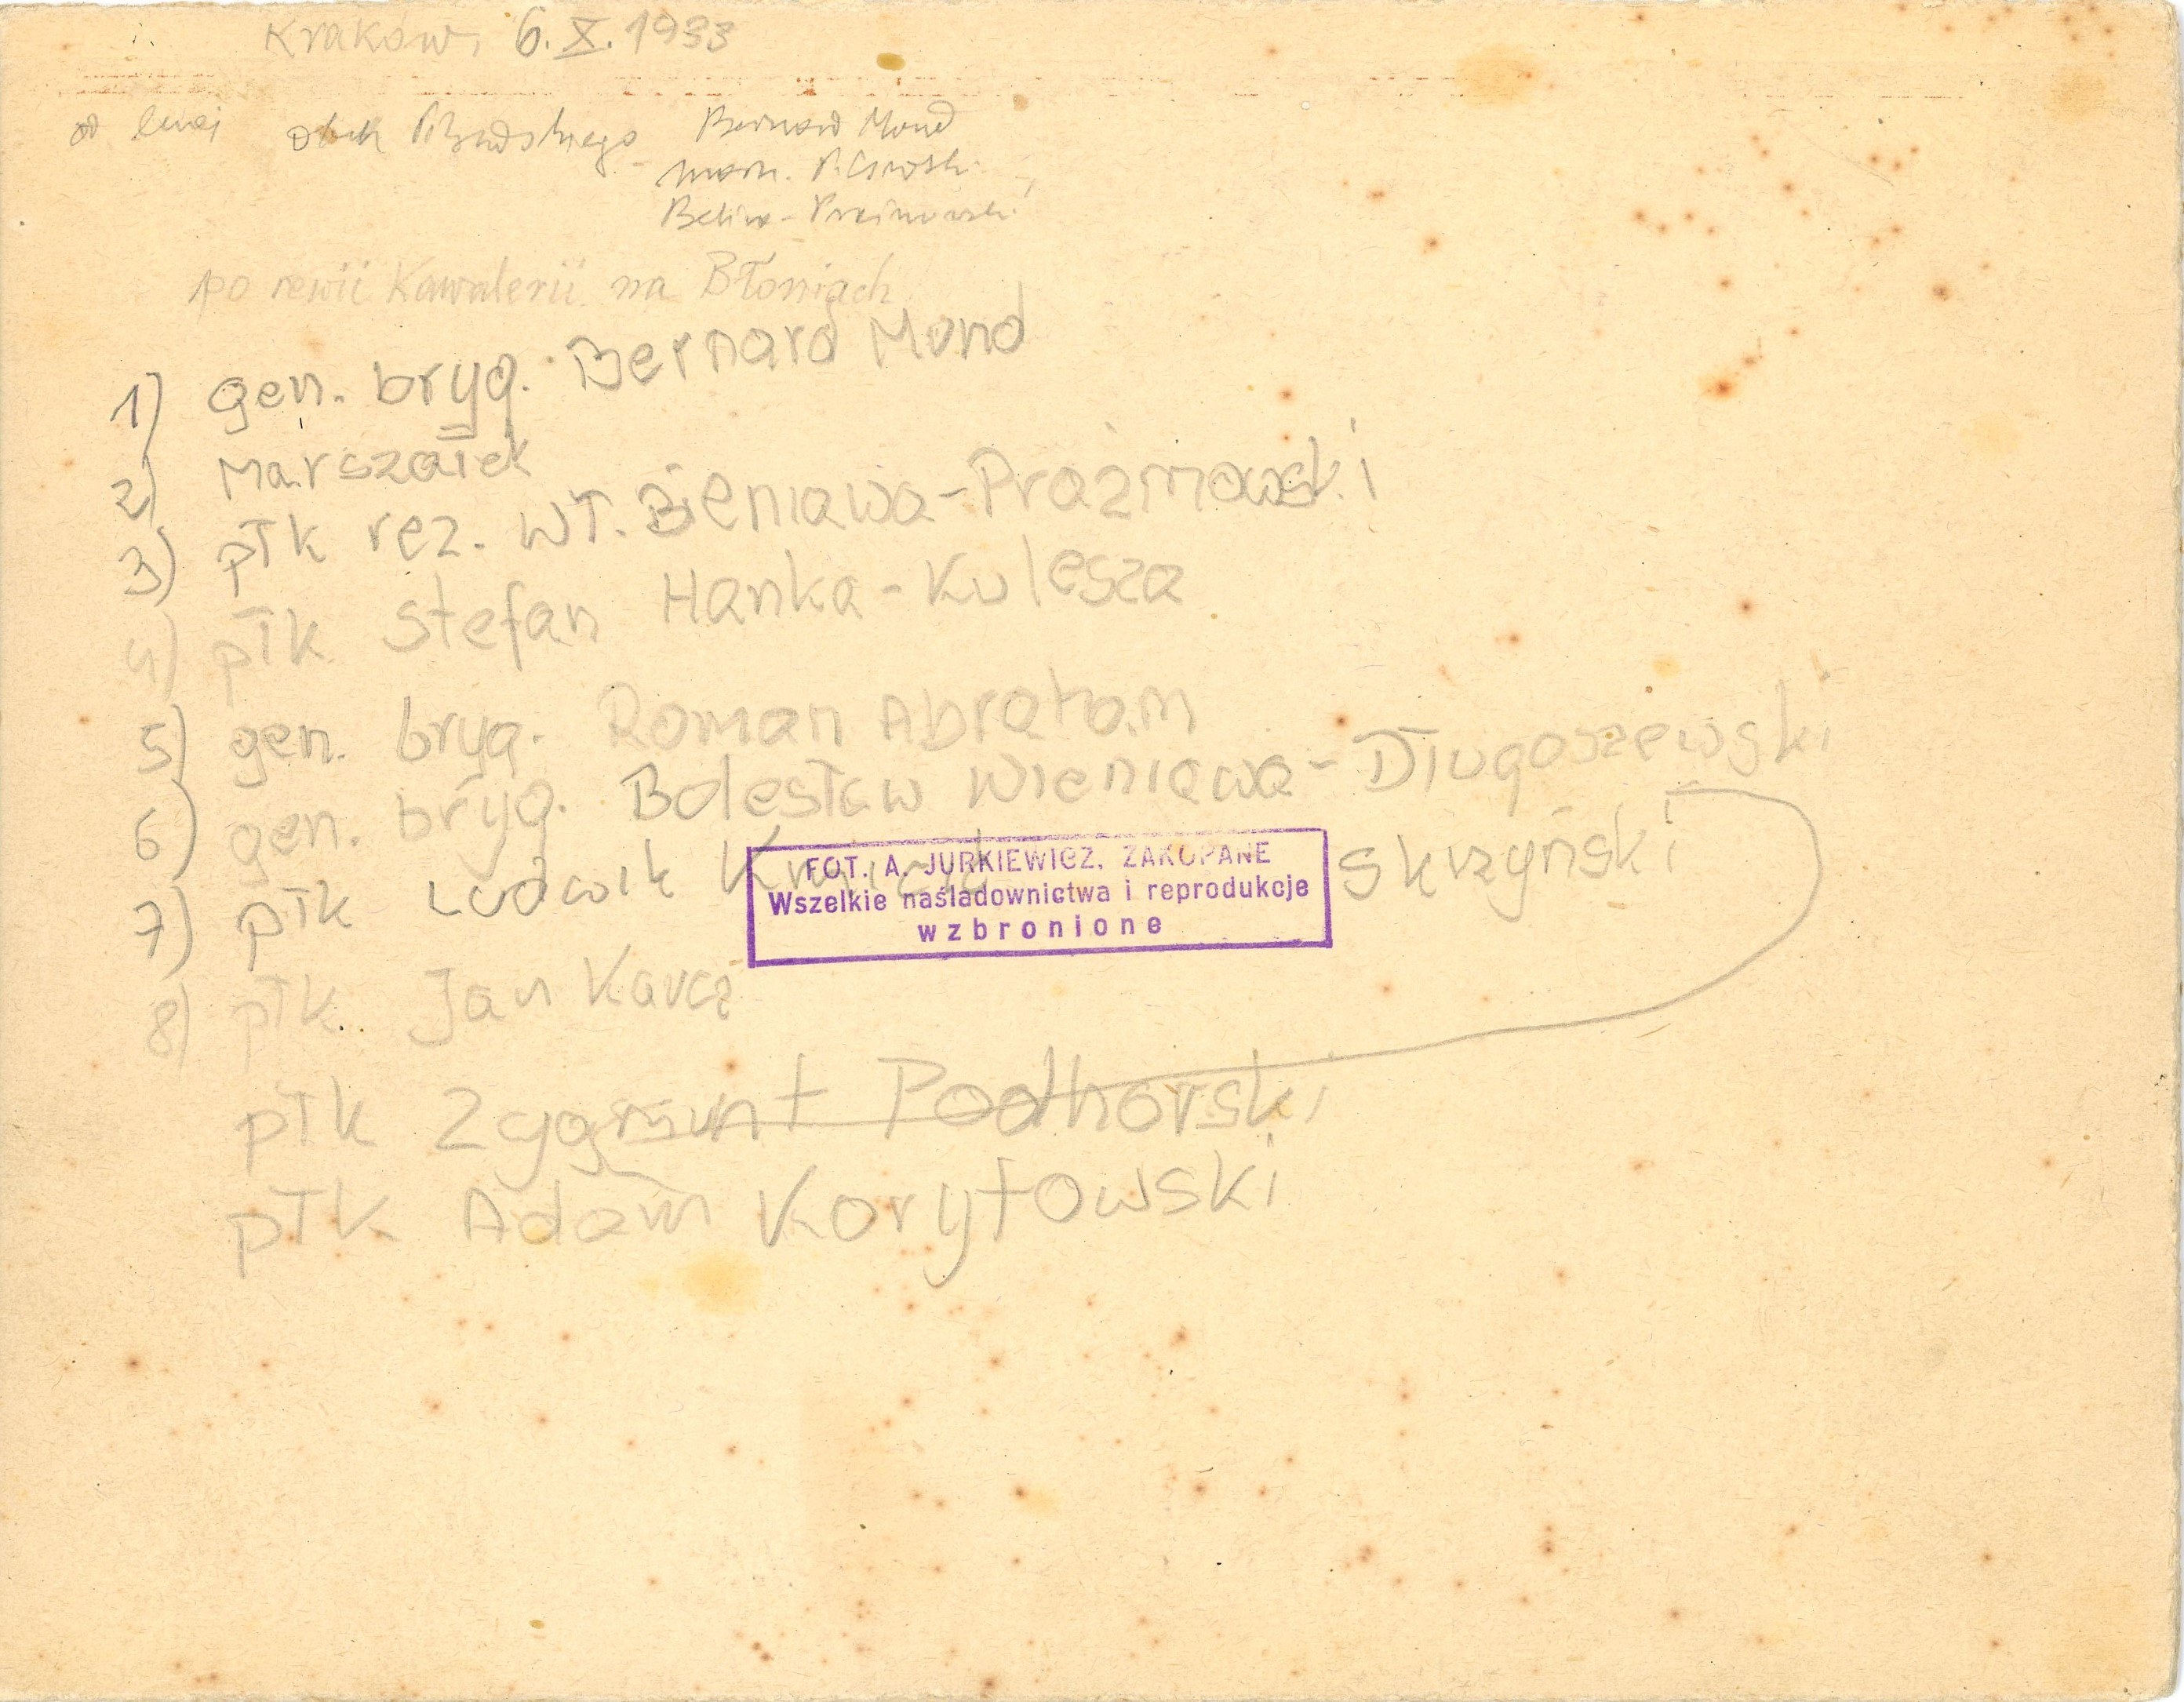 Kraków, 6.X.1933
od lewej obok Piłsudskiego Bernard Mond
marsz. Piłsudski
Belina-Prażmowski
po rewii Kawalerii na Błoniach
1) gen. bryg. Bernard Mond
2) Marszałek
3) płk rez. Wł. Bieniawa-Prażmowski
4) płk Stefan Hanka-Kulesza
5) gen. bryg. Roman Abraham
6) gen. bryg. Bolesław Wieniawa-Długoszewski
7) płk Ludwik Kmicic Skrzyński
FOT. A. JURKIEWICZ, ZAKOPANE
Wszelkie naśladownictwa i reprodukcje
wzbronione
8) płk. Jan Karcz
płk Zygmunt Podhorski
płk Adam Korytowski